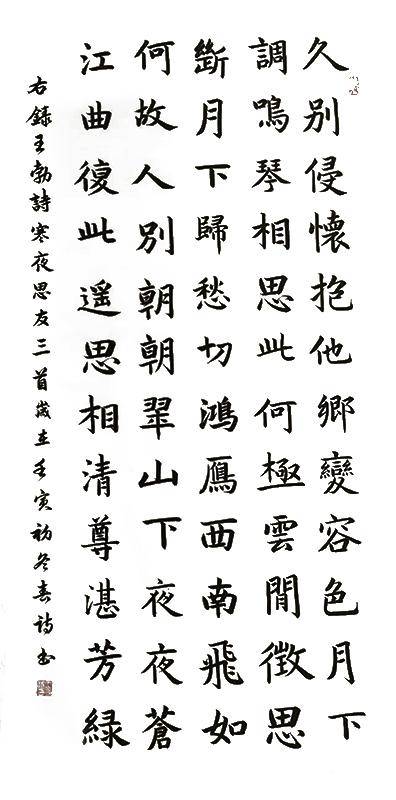 久別侵懷抱他鄉變容色月下
調鳴琴相思此何極雲閒徵思
斷月下歸愁切鴻鴈西南飛如
何故人別朝朝翠山下夜夜蒼
江曲復此遥思相清尊湛芳緑
右錄王勃詩寒夜思友三首歲在壬寅初冬春詩書